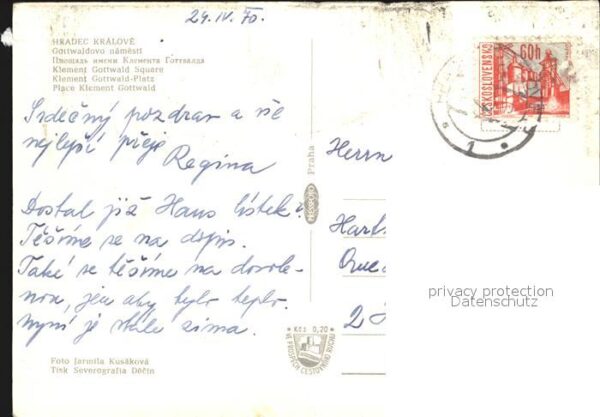 24.IV.70.
HRADEC KRÁLOVÉ
Gottwaldovo náměstí
Площадь имени Клемента Готтвальда
Klement Gottwald Square
Klement Gottwald-Platz
Place Klement Gottwald
Srdečný pozdrav a vše
nejlepší přeje
Regina
Dostal již Hans lístek?
Těšíme se na dopis.
Také se těšíme na dovole-
nou, jen aby bylo teplo.
nyní je stále zima.
Foto Jarmila Kusáková
Tisk Severografia Děčín
Praha
PRESSFOTO
ČESKOSLOVENSKO
60h
1
Herrn
Hart
2
privacy protection
Datenschutz
Kčs 0,20
VE PROSPĚCH CESTOVNÍHO RUCHU